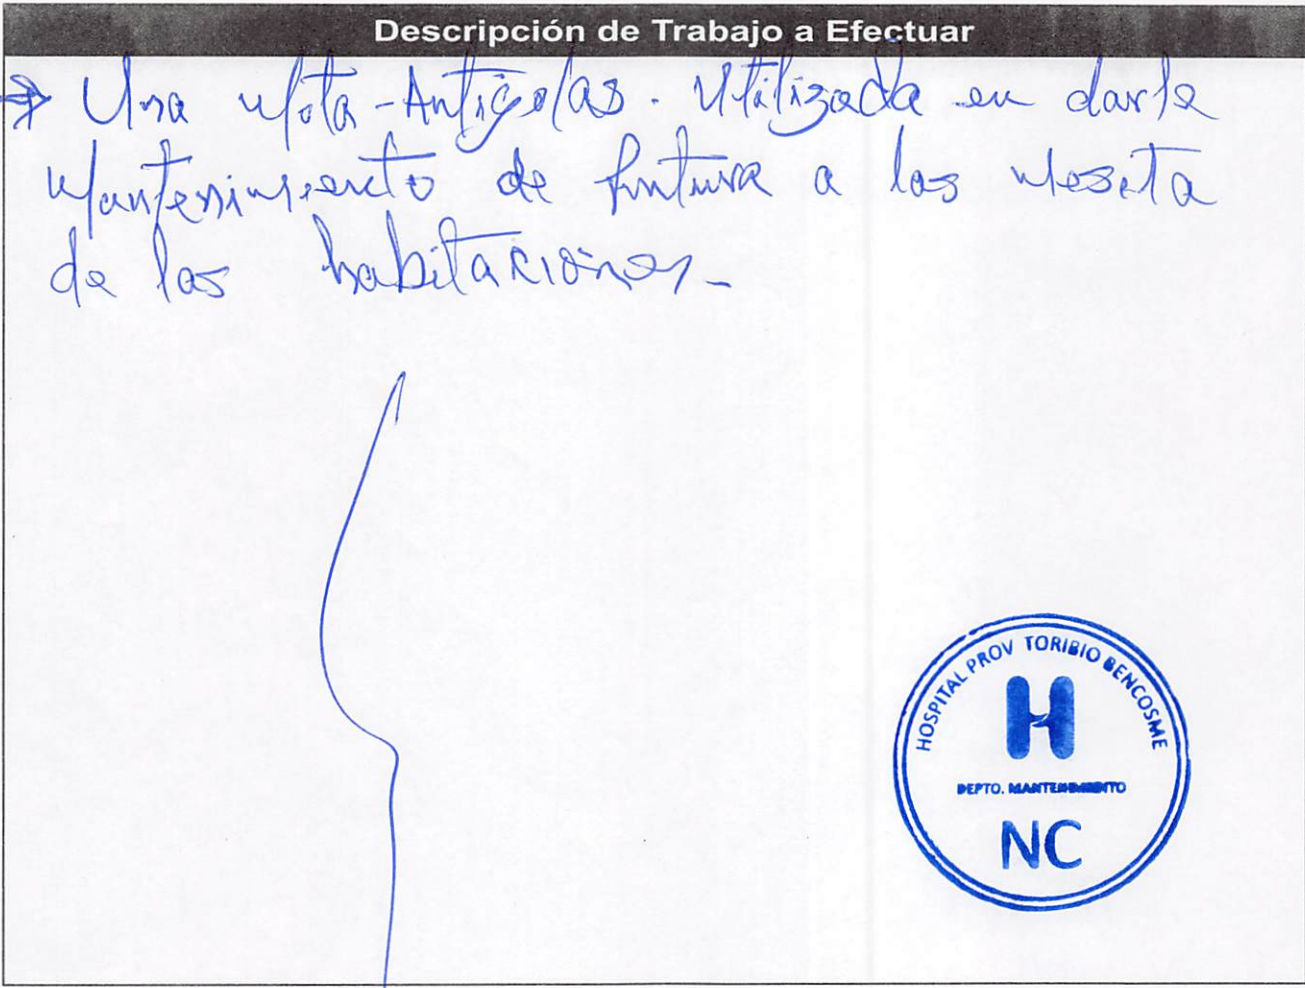 Descripción de Trabajo a Efectuar
→ Una Mota-Antigotas. Utilizada en darle
Mantenimiento de Pintura a las Meseta
de las habitaciones.
HOSPITAL PROV TORIBIO BENCOSME
H
DEPTO. MANTENIMIENTO
NC